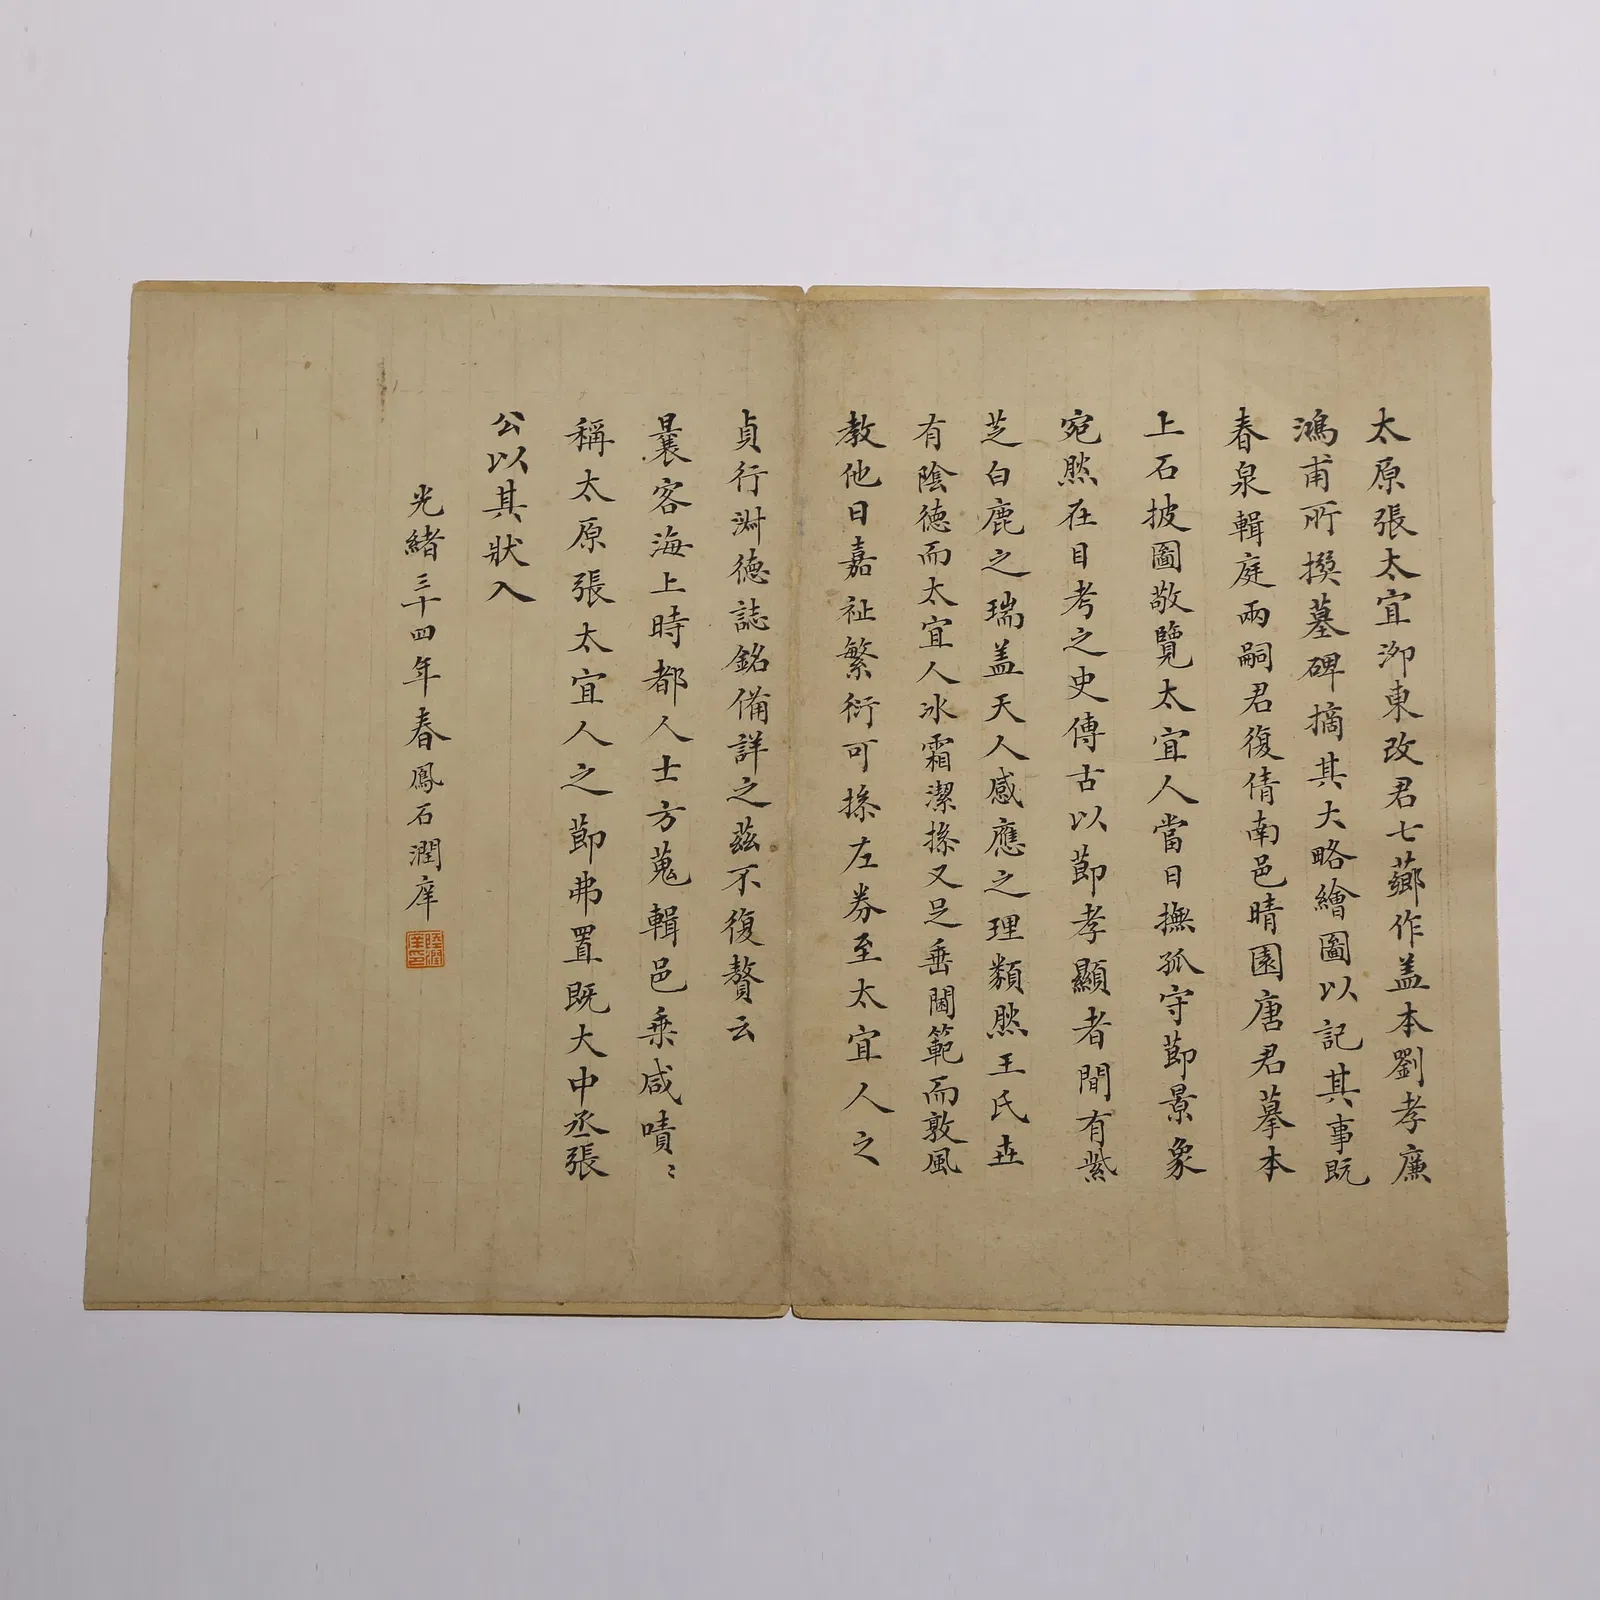 太原張太宜泖東改君七薌作盖本劉孝廉
鴻甫所撰墓碑摘其大略繪圖以記其事既
春泉輯庭兩嗣君復倩南邑晴園唐君摹本
上石披圖敬覽太宜人當日撫孤守節景象
宛然在目考之史傳古以節孝顯者間有紫
芝白鹿之瑞盖天人感應之理類然王氏世
有陰德而太宜人冰霜潔操又足垂閫範而敦風
教他日嘉祉繁衍可操左券至太宜人之
貞行淑德誌銘備詳之茲不復贅云
曩客海上時都人士方蒐輯邑乘咸嘖〻
稱太原張太宜人之節弗置既大中丞張
公以其狀入
光緒三十四年春鳳石潤庠
陸潤庠印